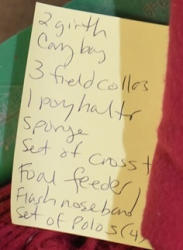 2 girth
Cary bag
3 field collas
1 pony haltr
Sponge
Set of cross t
Foal feeder
Flash noseband
Set of Polos (4)